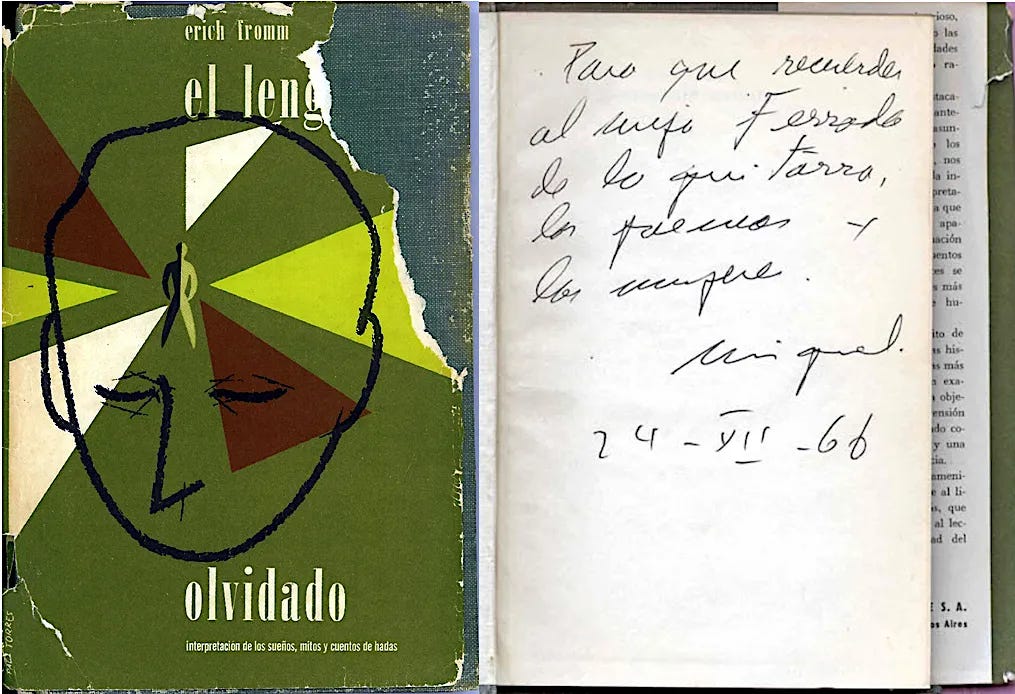 erich fromm
el leng
olvidado
interpretación de los sueños, mitos y cuentos de hadas
TORRES
Para que recuerdes
al viejo Ferrada
de la guitarra,
los poemas y
las mujeres.
Miguel.
24-XII-66
ioso,
las
dades
ra-
taca-
ante-
asun-
los
nos
la in-
preta-
a que
apa-
ación
entos
es se
más
hu-
ito de
s his-
s más
exa-
obje-
ensión
do co-
y una
cia.
ameni-
e al li-
s, que
al lec-
ad del
E S. A.
os Aires